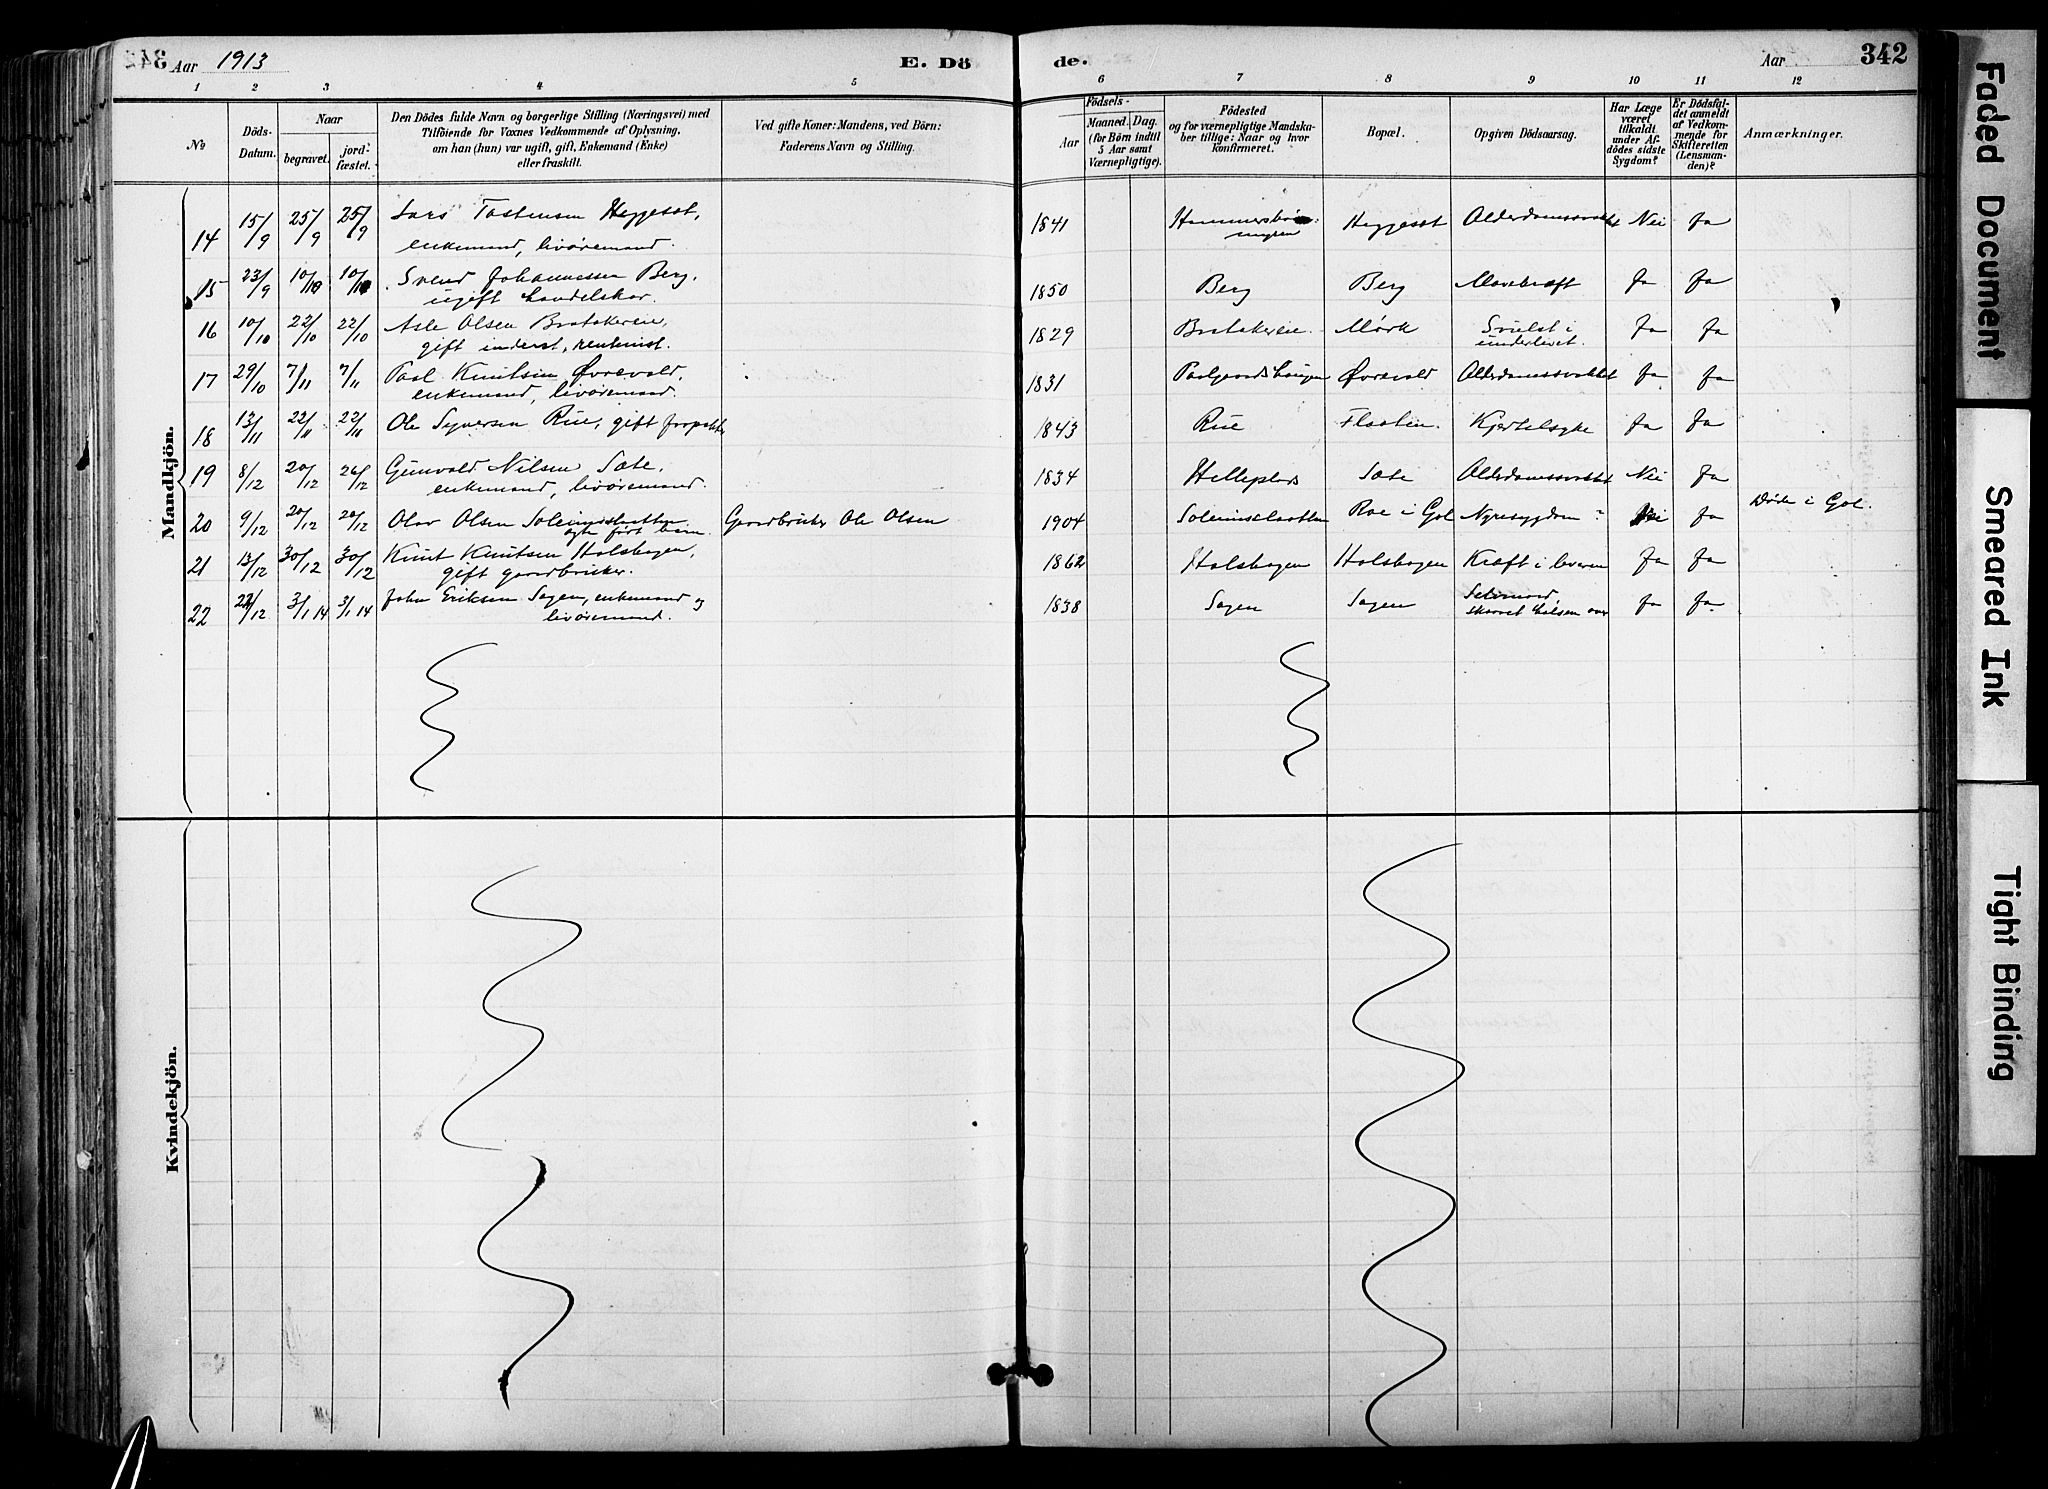 342
Aar 1913
E. Dö
de.
Aar
342
1 2 3 4 5 6 7 8 9 10 11 12
No
Döds-
Datum.
Naar
begravet.
jord-
fæstet.
Den Dödes fulde Navn og borgerlige Stilling (Næringsvei) med
Tilföiende for Voxnes Vedkommende af Oplysning,
om han (hun) var ugift, gift, Enkemand (Enke)
eller fraskilt.
Ved gifte Koner: Mandens, ved Börn:
Faderens Navn og Stilling.
Födsels-
Aar
Maaned. Dag.
(for Börn indtil
5 Aar samt
Værnepligtige).
Födested
og for værnepligtige Mandska-
ber tillige: Naar og hvor
konfirmeret.
Bopæl.
Opgiven Dödsaarsag.
Har Læge
været
tilkaldt
under Af-
dödes sidste
Sygdom?
Er Dödsfal-
det anmeldt
af Vedkom-
mende for
Skifteretten
(Lensman-
den)?
Anmærkninger.
Mandkjön.
14 15/9 25/9 25/9 Lars Tostensen Heggeset, 1841 Heggeset Alderdomssvakhet Nei Ja
enkemand, livøremand.
15 23/9 10/10 10/10 Svend Johannessen Berg, 1850 Berg Berg Mavekræft Ja Ja
ugift handelskar.
16 10/10 22/10 22/10 Asle Olsen Bratakereie, 1829 Bratakereie. Mørk Svulst i Ja Ja
gift inderst, rentenist. underlivet.
17 29/10 7/11 7/11 Paal Knutsen Øvrevold, 1831 Paalgaardshaugen Øvrevold Alderdomssvakhet Ja Ja
enkemand, livøremand.
18 13/11 22/11 22/11 Ole Syversen Rue, gift 1843 Rue Flaaten. Kjertelsyke Ja Ja
19 8/12 20/12 20/12 Gunvald Nilsen Sate, 1834 Helleplads Sate Alderdomssvakhet Nei Ja
enkemand, livøremand.
20 9/12 20/12 20/12 Olav Olsen Soleimslaatten Gaardbruker Ole Olsen 1904 Soleimslaatten Roe i Gol Nyresygdom? Nei Ja Døde i Gol.
egte født barn
21 13/12 30/12 30/12 Knut Knutsen Halshagen, 1862 Halshagen Halshagen Kræft i leveren Ja Ja
gift gaardbruker.
22 /12 3/1 14 3/1 14 John Eriksen Sagen, enkemand og 1838 Sagen Sagen Selvmord, Ja Ja
livøremand. skaaret halsen over
Kvindekjön.
Faded Document
Smeared Ink
Tight Binding